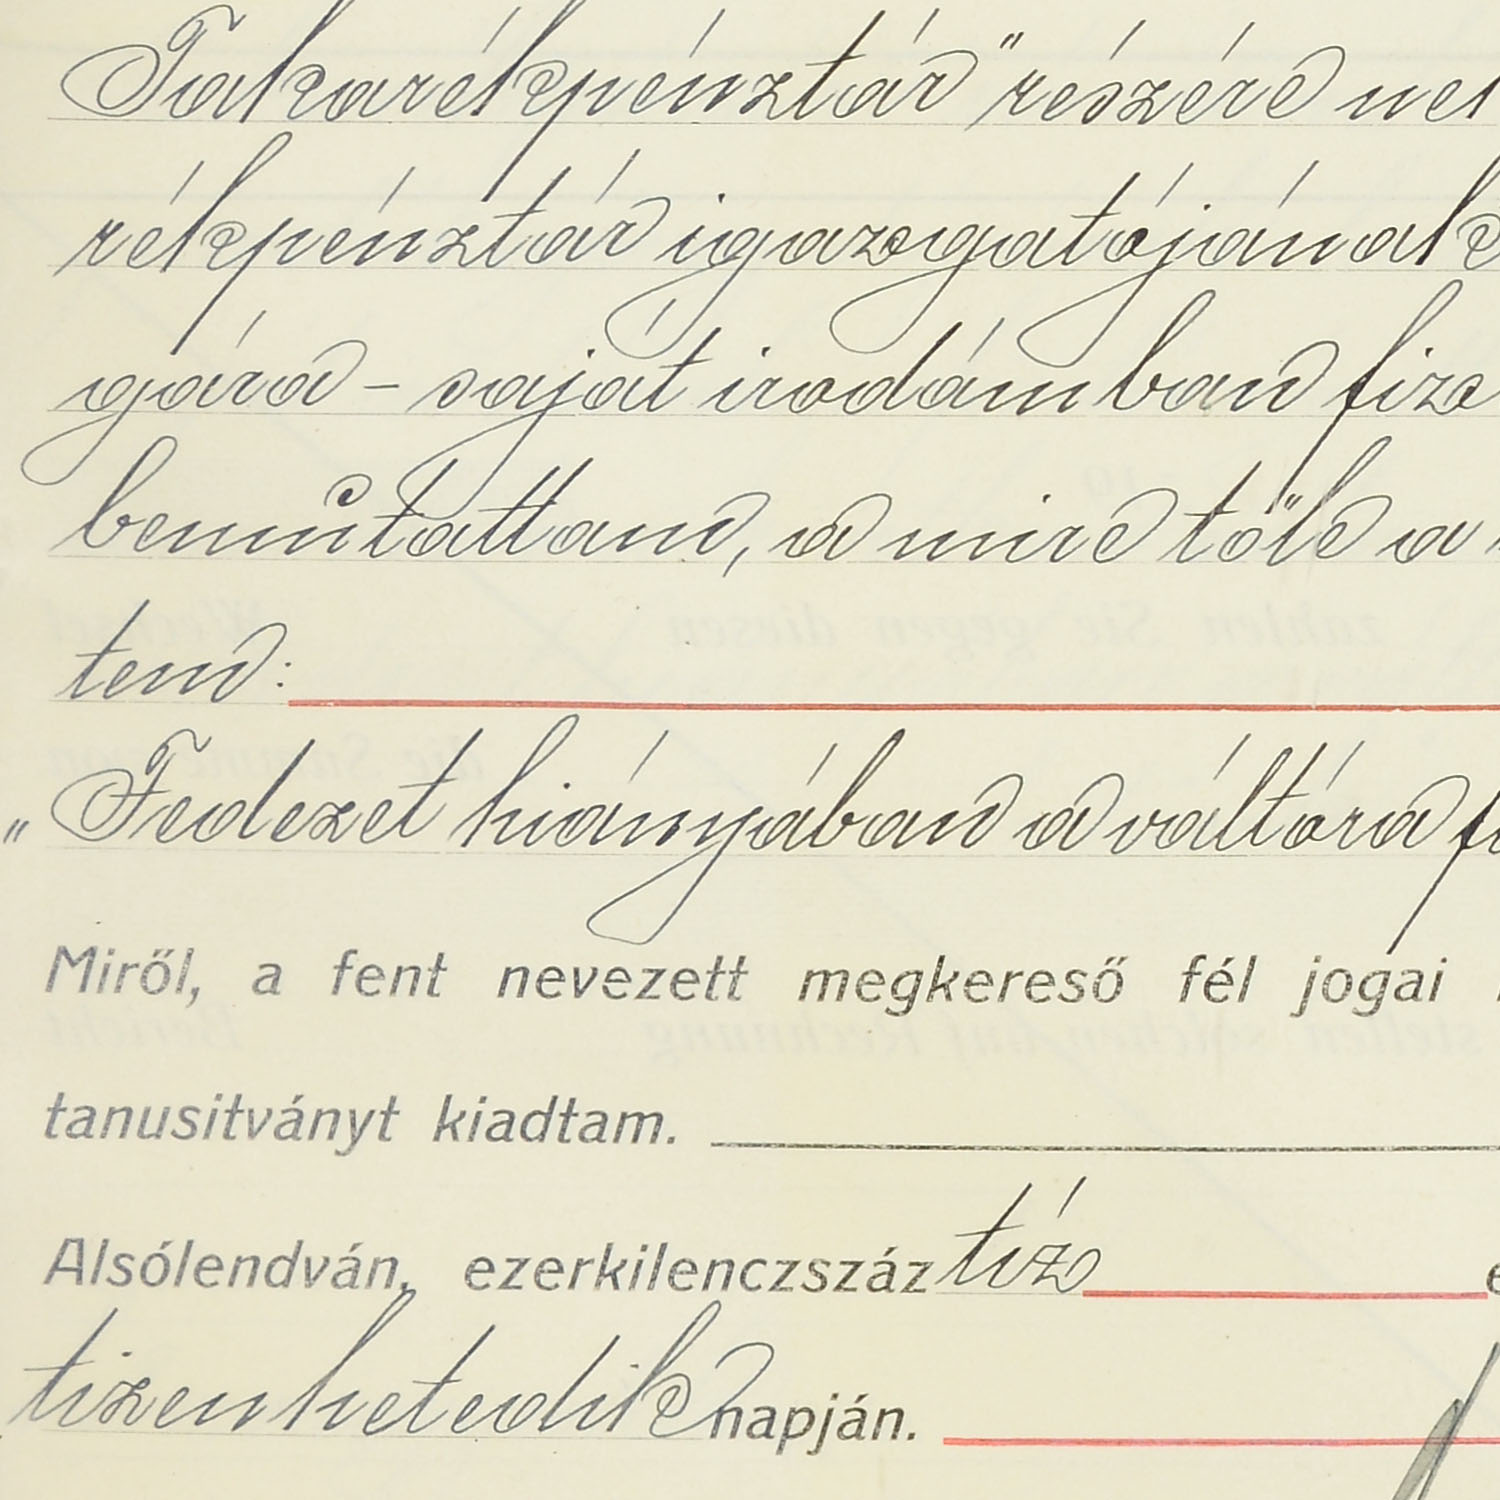 Takarékpénztár" részére
rékpénztár igazgatójának
gára – saját irodámban
bemutattam, a mire tőle a
tem:
„Fedezet hiányában a váltóra
Miről, a fent nevezett megkereső fél jogai
tanusitványt kiadtam.
Alsólendván, ezerkilenczszáz tíz
tizenhetedik napján.